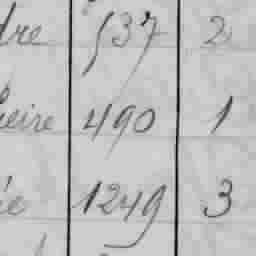 dre 537 2
eire 490 1
e 1249 3